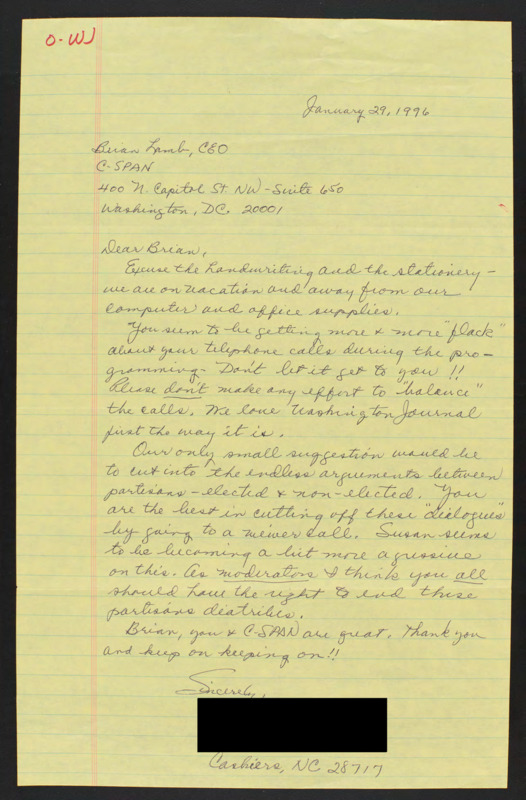 O-WJ
January 29, 1996
Brian Lamb, CEO
C-SPAN
400 N. Capitol St NW - Suite 650
Washington, DC. 20001
Dear Brian,
Excuse the handwriting and the stationery -
we are on vacation and away from our
computer and office supplies.
You seem to be getting more & more "flack"
about your telephone calls during the pro-
gramming - Don't let it get to you !!
Please don't make any effort to "balance"
the calls. We love Washington Journal
just the way it is.
Our only small suggestion would be
to cut into the endless arguments between
partisans - elected & non-elected. You
are the best in cutting off these "dialogues"
by going to a viewer call. Susan seems
to be becoming a bit more agressive
on this. As moderators I think you all
should have the right to end these
partisans diatribes.
Brian, you & C-SPAN are great. Thank you
and keep on keeping on!!
Sincerely,
Cashiers, NC 28717